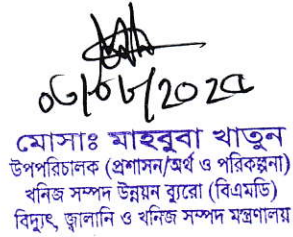 ০৬/০৮/২০২৫
মোসাঃ মাহবুবা খাতুন
উপপরিচালক (প্রশাসন/অর্থ ও পরিকল্পনা)
খনিজ সম্পদ উন্নয়ন ব্যুরো (বিএমডি)
বিদ্যুৎ, জ্বালানি ও খনিজ সম্পদ মন্ত্রণালয়